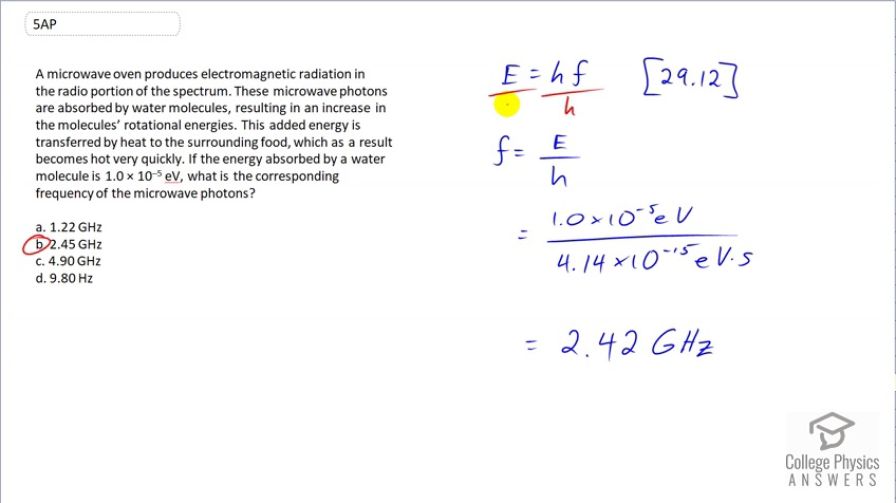 5AP
A microwave oven produces electromagnetic radiation in
the radio portion of the spectrum. These microwave photons
are absorbed by water molecules, resulting in an increase in
the molecules' rotational energies. This added energy is
transferred by heat to the surrounding food, which as a result
becomes hot very quickly. If the energy absorbed by a water
molecule is 1.0 × 10⁻⁵ eV, what is the corresponding
frequency of the microwave photons?
a. 1.22 GHz
b. 2.45 GHz
c. 4.90 GHz
d. 9.80 Hz
E = hf [29.12]
h
f = E
h
= 1.0×10⁻⁵ eV
4.14×10⁻¹⁵ eV·s
= 2.42 GHz
College Physics
ANSWERS